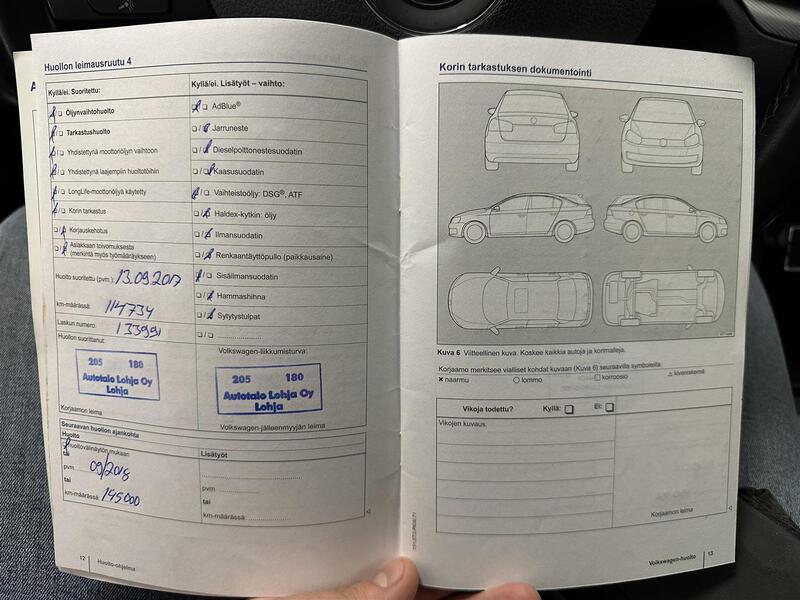 Huollon leimausruutu 4
Kyllä/ei. Suoritettu:
Öljynvaihtohuolto
Tarkastushuolto
Yhdistettynä moottoriöljyn vaihtoon
Yhdistettynä laajempiin huoltotöihin
LongLife-moottoriöljyä käytetty
Korin tarkastus
Korjauskehotus
Asiakkaan toivomuksesta
(merkintä myös työmääräykseen)
Huolto suoritettu (pvm.): 13.09.2017
km-määrässä: 114734
Laskun numero: 133991
Huollon suorittanut:
205 180
Autotalo Lohja Oy
Lohja
Korjaamon leima
Kyllä/ei. Lisätyöt – vaihto:
AdBlue®
Jarruneste
Dieselpolttonestesuodatin
Kaasusuodatin
Vaihteistoöljy: DSG®, ATF
Haldex-kytkin: öljy
Ilmansuodatin
Renkaantäyttöpullo (paikkausaine)
Sisäilmansuodatin
Hammashihna
Sytytystulpat
Volkswagen-liikkumisturva:
205 180
Autotalo Lohja Oy
Lohja
Volkswagen-jälleenmyyjän leima
Seuraavan huollon ajankohta
Huolto
Huoltovälinäytön mukaan
tai
pvm. 09/2018
tai
km-määrässä: 145000
Lisätyöt
pvm
tai
km-määrässä:
12 Huolto-ohjelma
Korin tarkastuksen dokumentointi
Kuva 6 Viitteellinen kuva. Koskee kaikkia autoja ja korimalleja.
Korjaamo merkitsee vialliset kohdat kuvaan (Kuva 6) seuraavilla symboleilla:
× naarmu ○ lommo □ korroosio △ kiveniskemä
Vikoja todettu? Kyllä: Ei:
Vikojen kuvaus:
Korjaamon leima
Volkswagen-huolto 13